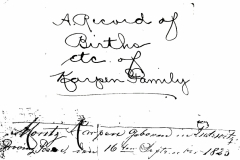 A Record of
Births
etc. of
Karpen Family
Moritz Karpen geboren in
den 16ten September 1823